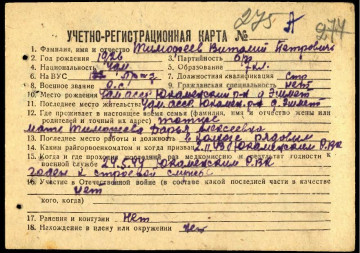 275 А
274
УЧЕТНО-РЕГИСТРАЦИОННАЯ КАРТА №
1. Фамилия, имя и отчество Тимофеев Виталий Петрович
2. Год рождения 1926 3. Партийность б/п
4. Национальность 5. Образование 7 кл.
6. На ВУС 7. Должностная квалификация Стр
8. Военное звание 9. Гражданская специальность нет
10. Место рождения
11. Последнее место жительства
12. Где проживает в настоящее время семья (фамилия, имя и отчество жены или
родителей и точный их адрес)
мать Тимофеева Дарья Алексеевна
13. Последнее место работы и должность в колхозе рядовым
14. Каким райгорвоенкоматом и когда призван
15. Когда и где проходил последний раз медкомиссию и результат годности к
военной службе РВК
годен к строевой службе
16. Участие в Отечественной войне (в составе какой последней части и в качестве
кого, когда) нет
17. Ранения и контузии Нет
18. Нахождение в плену или окружении нет